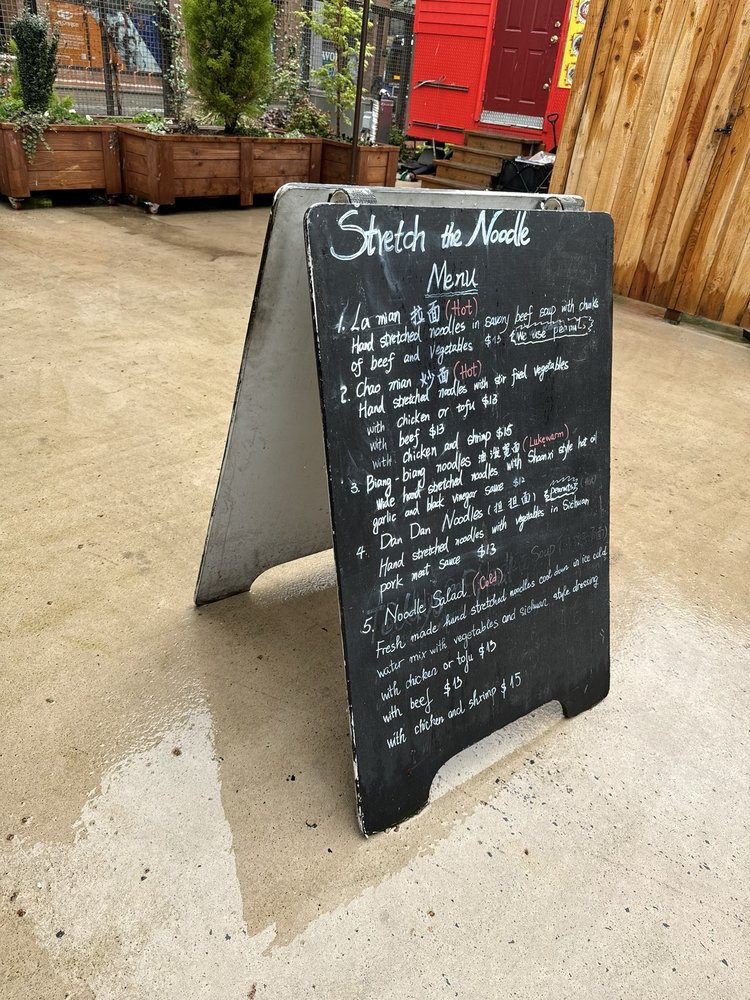 Stretch the Noodle
Menu
1. La mian 拉面 (Hot)
Hand stretched noodles in savory beef soup with chunks
of beef and vegetables $15 {We use peanuts}
2. Chao mian 炒面 (Hot)
Hand stretched noodles with stir fried vegetables
with chicken or tofu $13
with beef $13
with chicken and shrimp $15
3. Biang-biang noodles 油泼宽面 (Lukewarm)
Wide hand stretched noodles with Shaanxi style hot oil
garlic and black vinegar sauce $12
4. Dan Dan Noodles (担担面) {peanuts}
Hand stretched noodles with vegetables in Sichuan
pork meat sauce $13
5. Noodle Salad (Cold)
Fresh made hand stretched noodles cool down in ice cold
water mix with vegetables and sichuan style dressing
with chicken or tofu $13
with beef $13
with chicken and shrimp $15